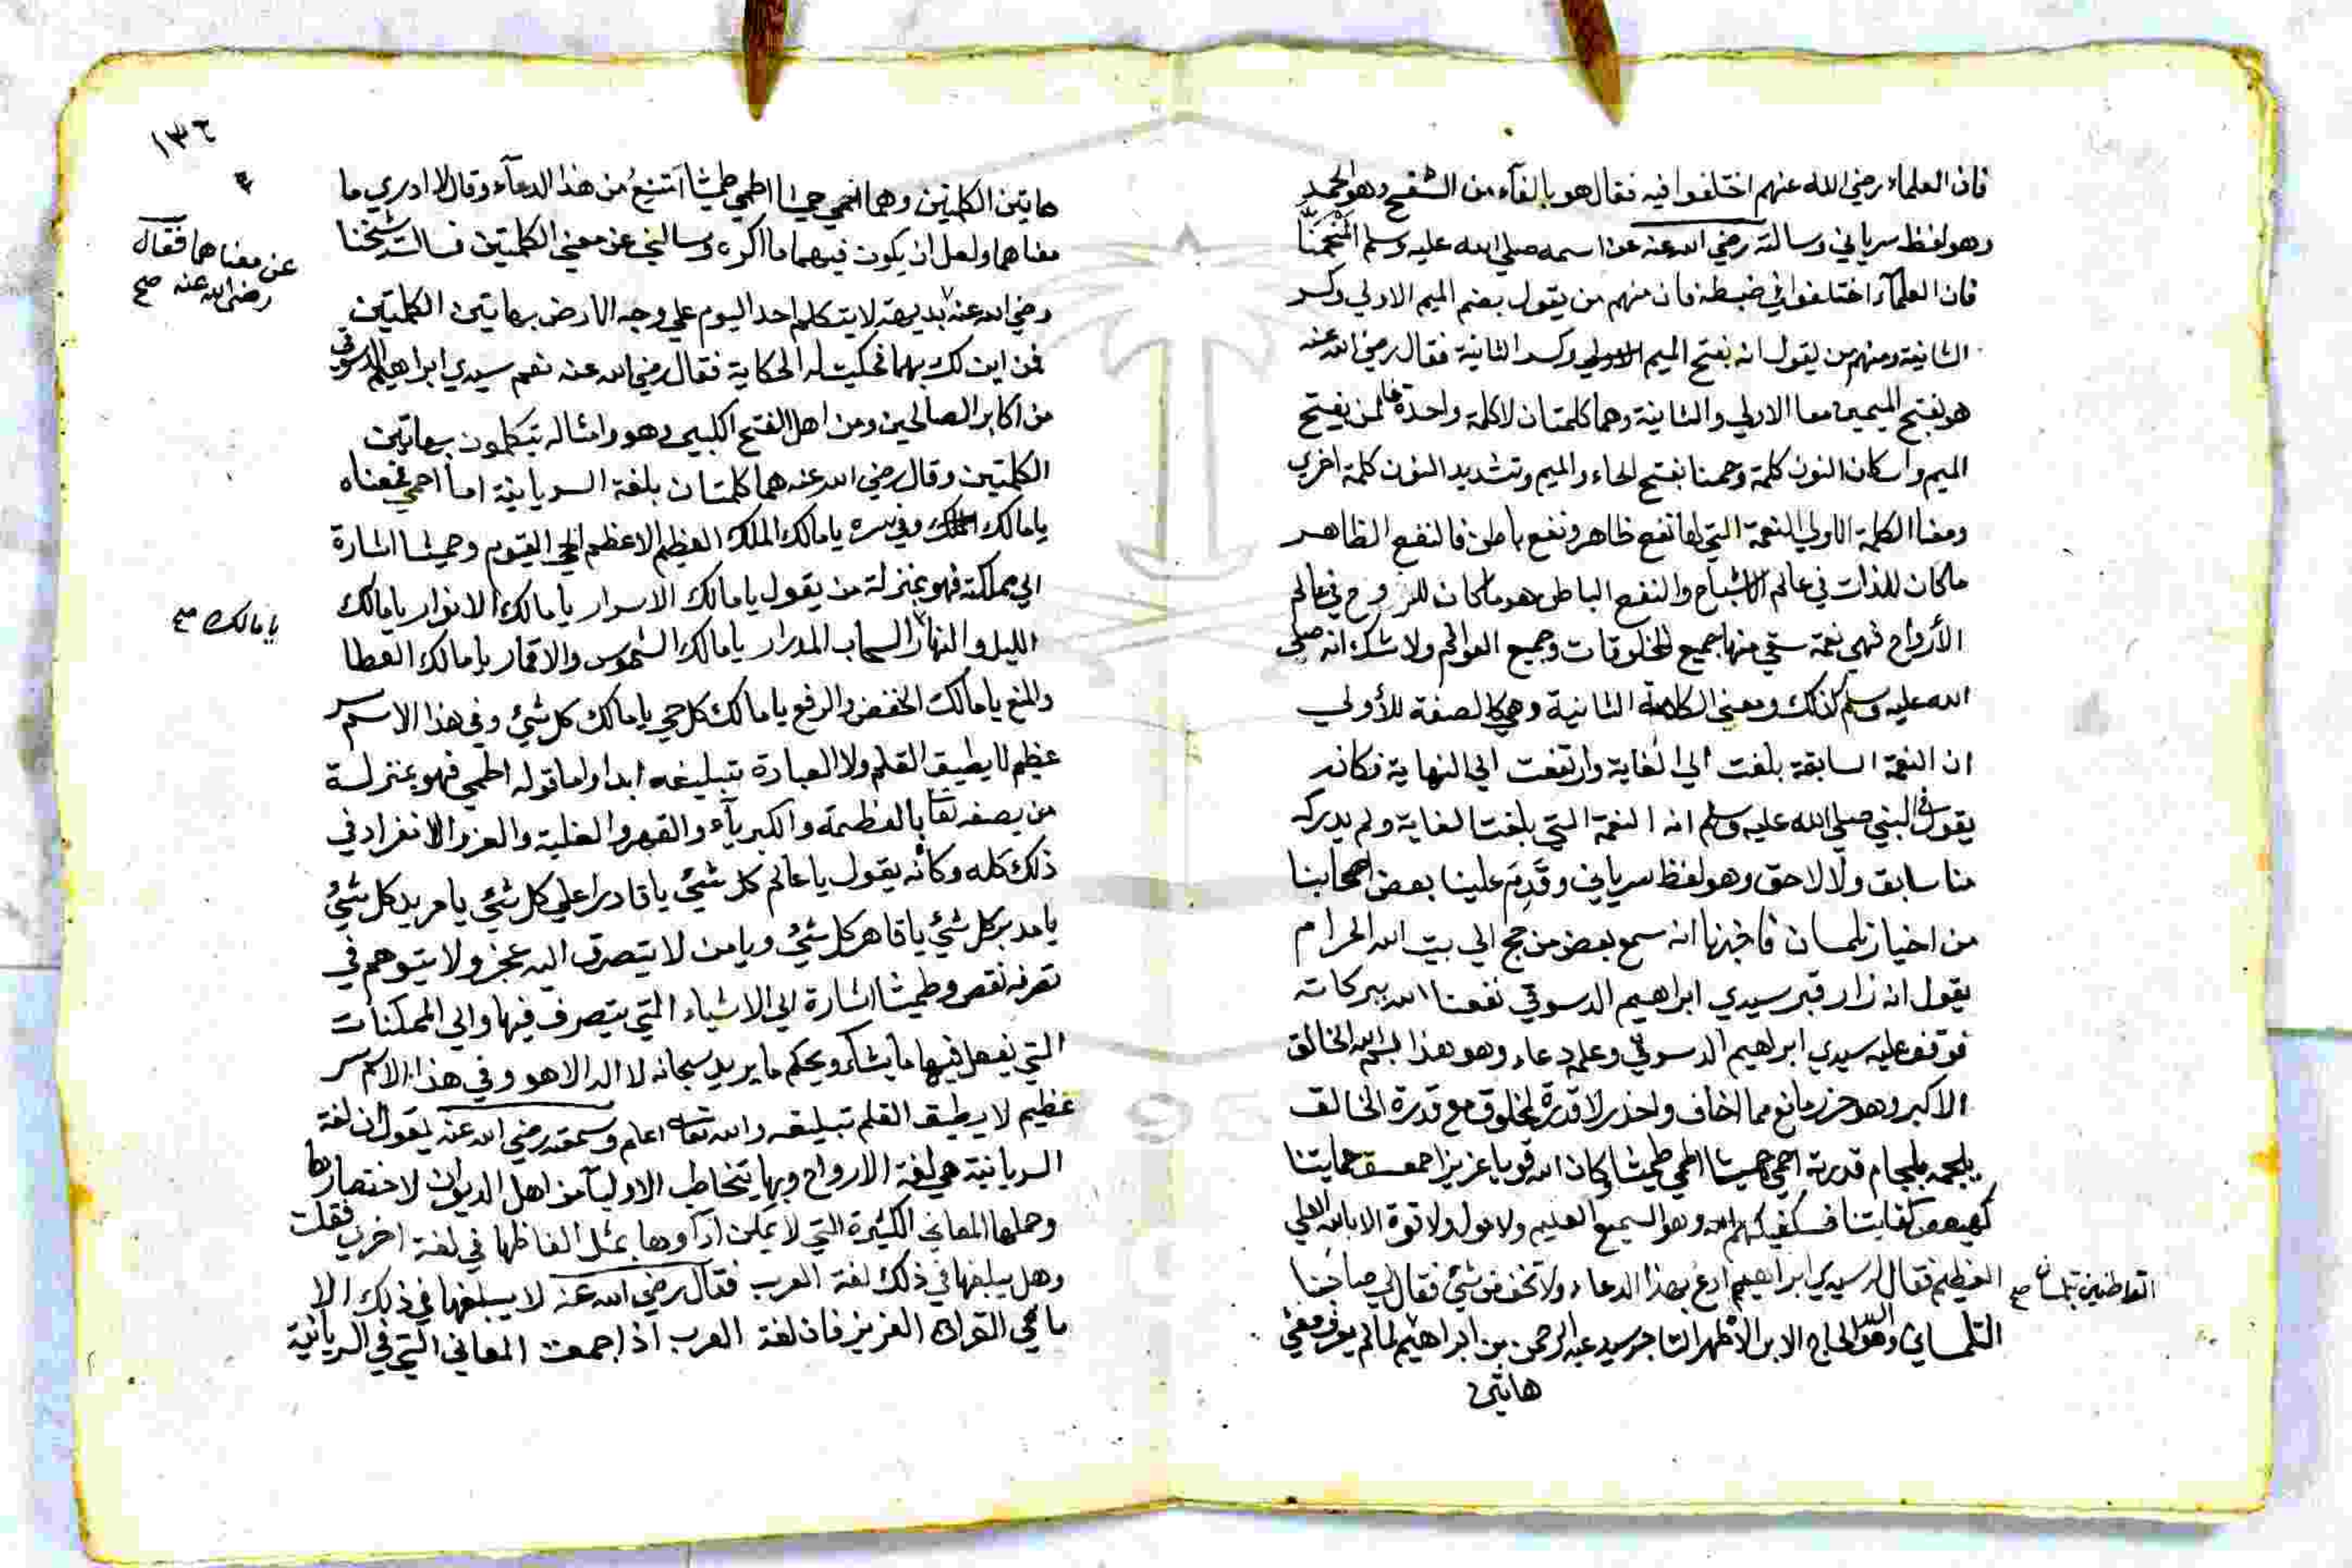 فان العلماء رضي الله عنهم اختلفوا فيه فقال هو بالفآء من الشفح وهو الحمد
وهو لفظ سرياني وسالته رضي الله عنه عن اسمه صلي الله عليه وسلم المنحمنا
فان العلمآء اختلفوا في ضبطه فان منهم من يقول بضم الميم الاولي وكسر
الثانية ومنهم من يقول انه بفتح الميم الاولي وكسر الثانية فقال رضي الله عنه
هو بفتح الميمين معا الاولي والثانية وهما كلمتان لا كلمة واحدة فلمن بفتح
الميم واسكان النون كلمة وحمنا بفتح الحاء والميم وتشديد النون كلمة اخري
ومعنا الكلمة الاولي النعمة التي لها نفع ظاهر ونفع باطن فالنفع الظاهر
ما كان للذات في عالم الاشباح والنفع الباطن هو ما كان للروح في عالم
الأرواح فهي نعمة سقي منها جميع المخلوقات وجميع العوالم ولا شك انه صلي
الله عليه وسلم كذلك ومعني الكلمة الثانية وهي كالصفة للأولي
ان النعمة السابقة بلغت الي الغاية وارتفعت الي النهاية فكانه
يقول في النبي صلي الله عليه وسلم انه النعمة التي بلغت الغاية ولم يدركه
منا سابق ولا لاحق وهو لفظ سرياني وقدم علينا بعض اصحابنا
من اخيار تلمسان فاخبرنا انه سمع بعض من حج الي بيت الله الحرام
يقول انه زار قبر سيدي ابراهيم الدسوقي نفعنا الله ببركاته
فوقف عليه سيدي ابراهيم الدسوقي وعلمه دعاء وهو هذا بسم الله الخالق
الاكبر وهو حرز مانع مما اخاف واحذر لا قدرة لمخلوق مع قدرة الخالق
يلجمه بلجام قدرته احمي حميثا اطمي طميثا وكان الله قويا عزيزا حمعسق حمايتنا
كهيعص كفايتنا فسيكفيكهم الله وهو السميع العليم ولا حول ولا قوة الا بالله العلي
العظيم فقال له سيدي ابراهيم ادع بهذا الدعاء ولا تخف من شئ فقال لي صاحبنا
القاطنين بتلمسان صح
التلمساني وهو الحاج الابر الاطهر التاجر سيد عبد الرحمن بن ابراهيم لما لم يعرف معني
هاتين
١٣٦
هاتين الكلمتين وهما احمي حميثا اطمي طميثا امتنع من هذا الدعآء وقال لا ادري ما
معناهما ولعل ان يكون فيهما ما اكره وسالني عن معني الكلمتين فسالت شيخنا
عن معناهما فقال
رضي الله عنه صح
رضي الله عنه بديهة لا يتكلم احد اليوم علي وجه الارض بهاتين الكلمتين
فمن اين لك بهما فحكيت له الحكاية فقال رضي الله عنه نعم سيدي ابراهيم الدسوقي
من اكابر الصالحين ومن اهل الفتح الكبير وهو وامثاله يتكلمون بهاتين
الكلمتين وقال رضي الله عنه هما كلمتان بلغة السريانية اما احمي فمعناه
يا مالك الملك وفي سره يا مالك الملك العظيم الاعظم الحي القيوم وحميثا اشارة
الي مملكته فهو بمنزلة من يقول يا مالك الاسرار يا مالك الانوار يا مالك
الليل والنهار السحاب المدرار يا مالك الشموس والاقمار يا مالك العطا
يا مالك صح
والمنع يا مالك الخفض والرفع يا مالك كل حي يا مالك كل شئ وفي هذا الاسم سر
عظيم لا يطيق القلم ولا العبارة تبليغه ابدا واما قوله اطمي فهو بمنزلة
من يصفه تعا بالعظمة والكبريآء والقهر والغلبة والعز والانفراد في
ذلك كله وكأنه يقول يا عالم كل شئ يا قادرا علي كل شئ يا مريد كل شئ
يا مدبر كل شئ يا قاهر كل شئ ويا من لا يتصرق اليه عجز ولا يتوهم في
تصرفه نقص وطميثا اشارة الي الاشياء التي يتصرف فيها والي الممكنات
التي يفعل فيها ما يشاء ويحكم ما يريد سبحانه لا اله الا هو وفي هذا الاسم سر
عظيم لا يطيق القلم تبليغه والله تعا اعلم وسمعته رضي الله عنه يقول ان لغة
السريانية هي لغة الارواح وبها يتخاطب الاوليآء من اهل الديوان لاختصارها
وحملها المعاني الكثيرة التي لا يمكن ادآوها بمثل الفاظها في لغة اخري فقلت
وهل يبلغها في ذلك لغة العرب فقال رضي الله عنه لا يبلغها في ذلك الا
ما في القران العزيز فان لغة العرب اذا جمعت المعاني التي في السريانية